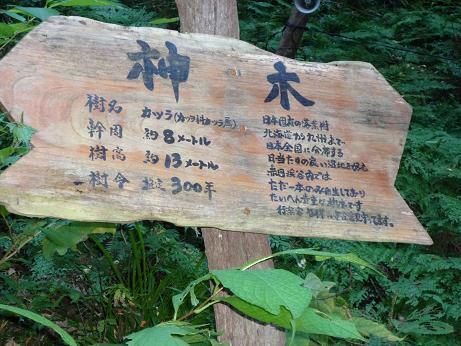 神木
樹名 カツラ(カツラ科カツラ属)
幹周 約8メートル
樹高 約13メートル
樹令 推定300年
日本固有の落葉樹
北海道から九州まで
日本全国に分布する
日当たりの良い湿地を好む
赤目渓谷では
ただ一本のみ自生しており
たいへん貴重な樹木です